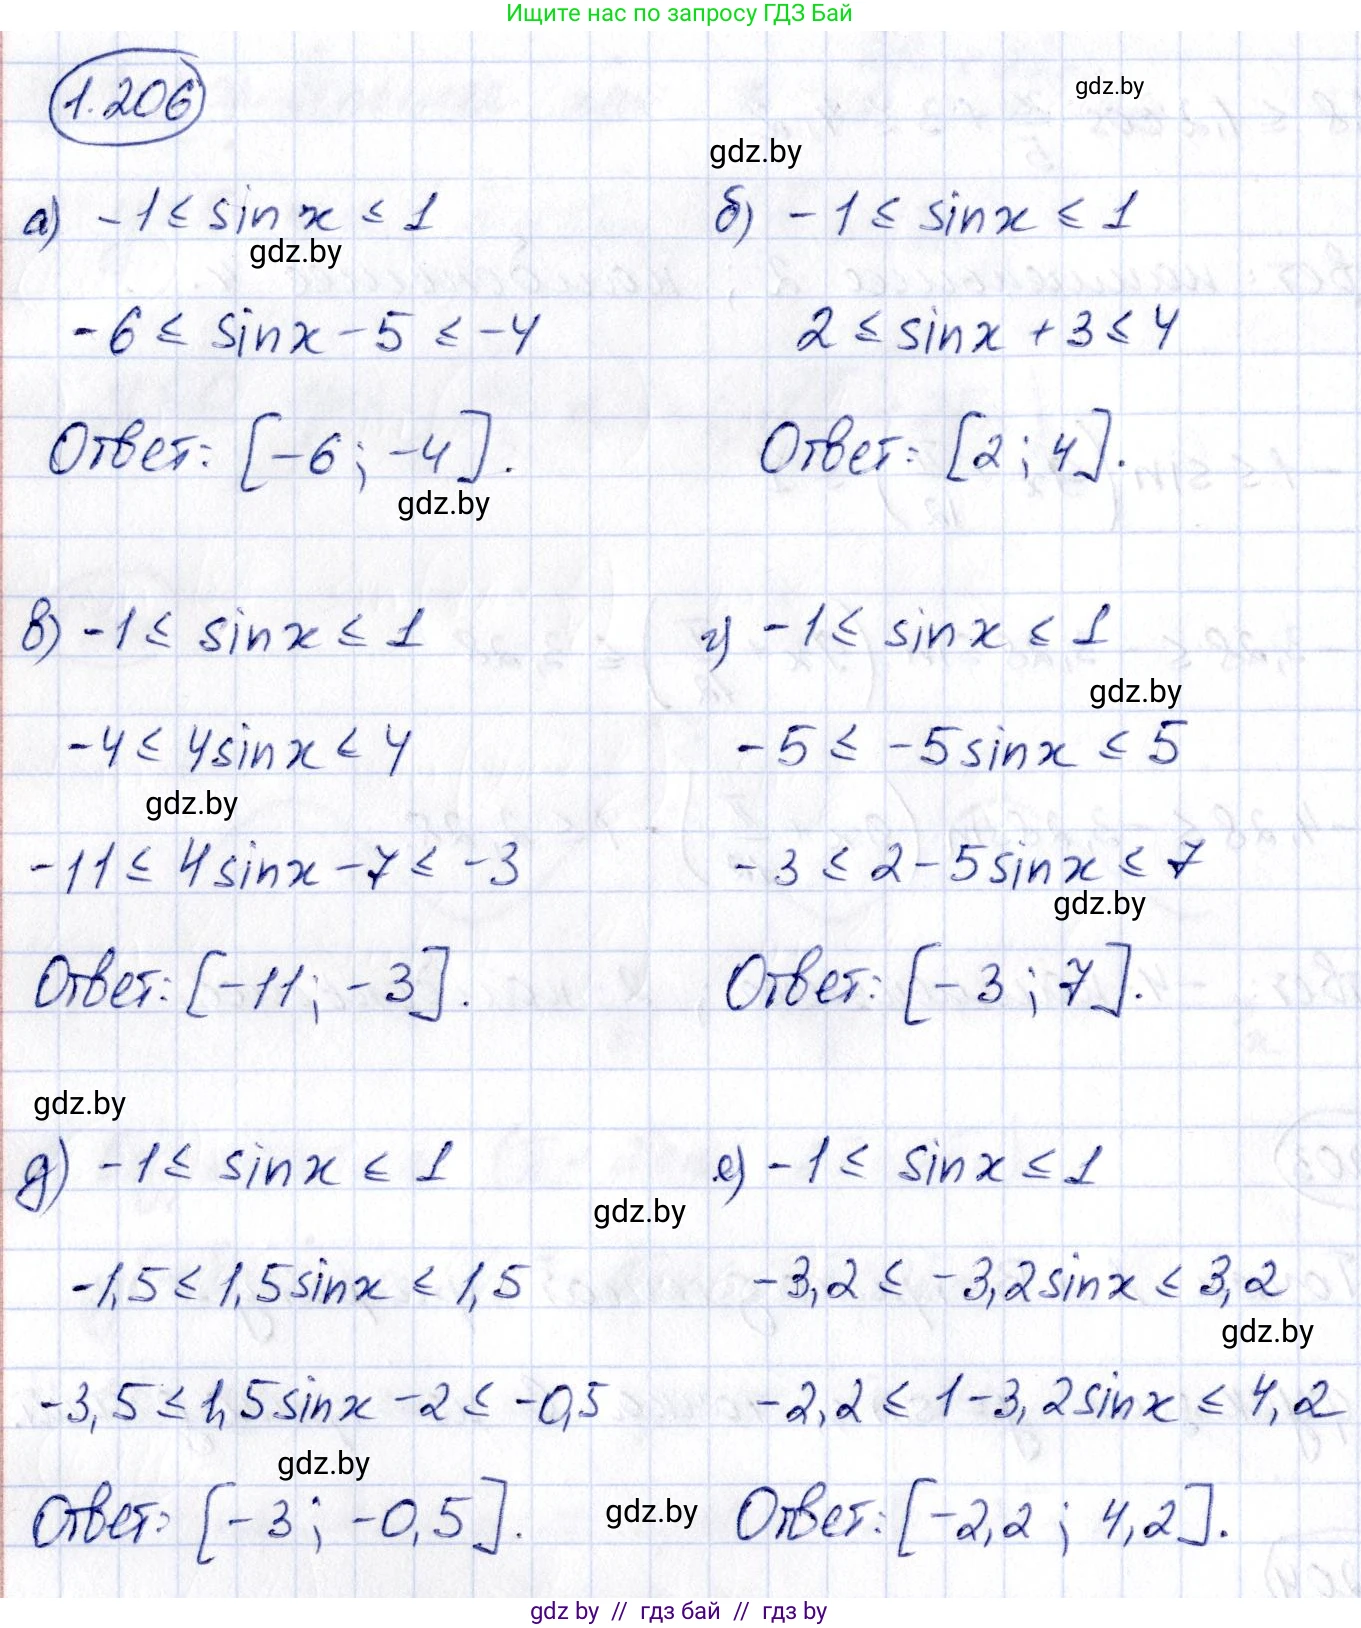 Ищите нас по запросу ГДЗ Бай
1.206
gdz.by
gdz.by
а) -1 ≤ sin x ≤ 1
gdz.by
-6 ≤ sin x - 5 ≤ -4
Ответ: [-6; -4].
gdz.by
б) -1 ≤ sin x ≤ 1
2 ≤ sin x + 3 ≤ 4
Ответ: [2; 4].
в) -1 ≤ sin x ≤ 1
-4 ≤ 4 sin x ≤ 4
gdz.by
-11 ≤ 4 sin x - 7 ≤ -3
Ответ: [-11; -3].
г) -1 ≤ sin x ≤ 1
gdz.by
-5 ≤ -5 sin x ≤ 5
-3 ≤ 2 - 5 sin x ≤ 7
gdz.by
Ответ: [-3; 7].
gdz.by
д) -1 ≤ sin x ≤ 1
gdz.by
-1,5 ≤ 1,5 sin x ≤ 1,5
-3,5 ≤ 1,5 sin x - 2 ≤ -0,5
gdz.by
Ответ: [-3; -0,5].
gdz.by
е) -1 ≤ sin x ≤ 1
-3,2 ≤ -3,2 sin x ≤ 3,2
gdz.by
-2,2 ≤ 1 - 3,2 sin x ≤ 4,2
Ответ: [-2,2; 4,2].
gdz by // гдз бай // гдз by